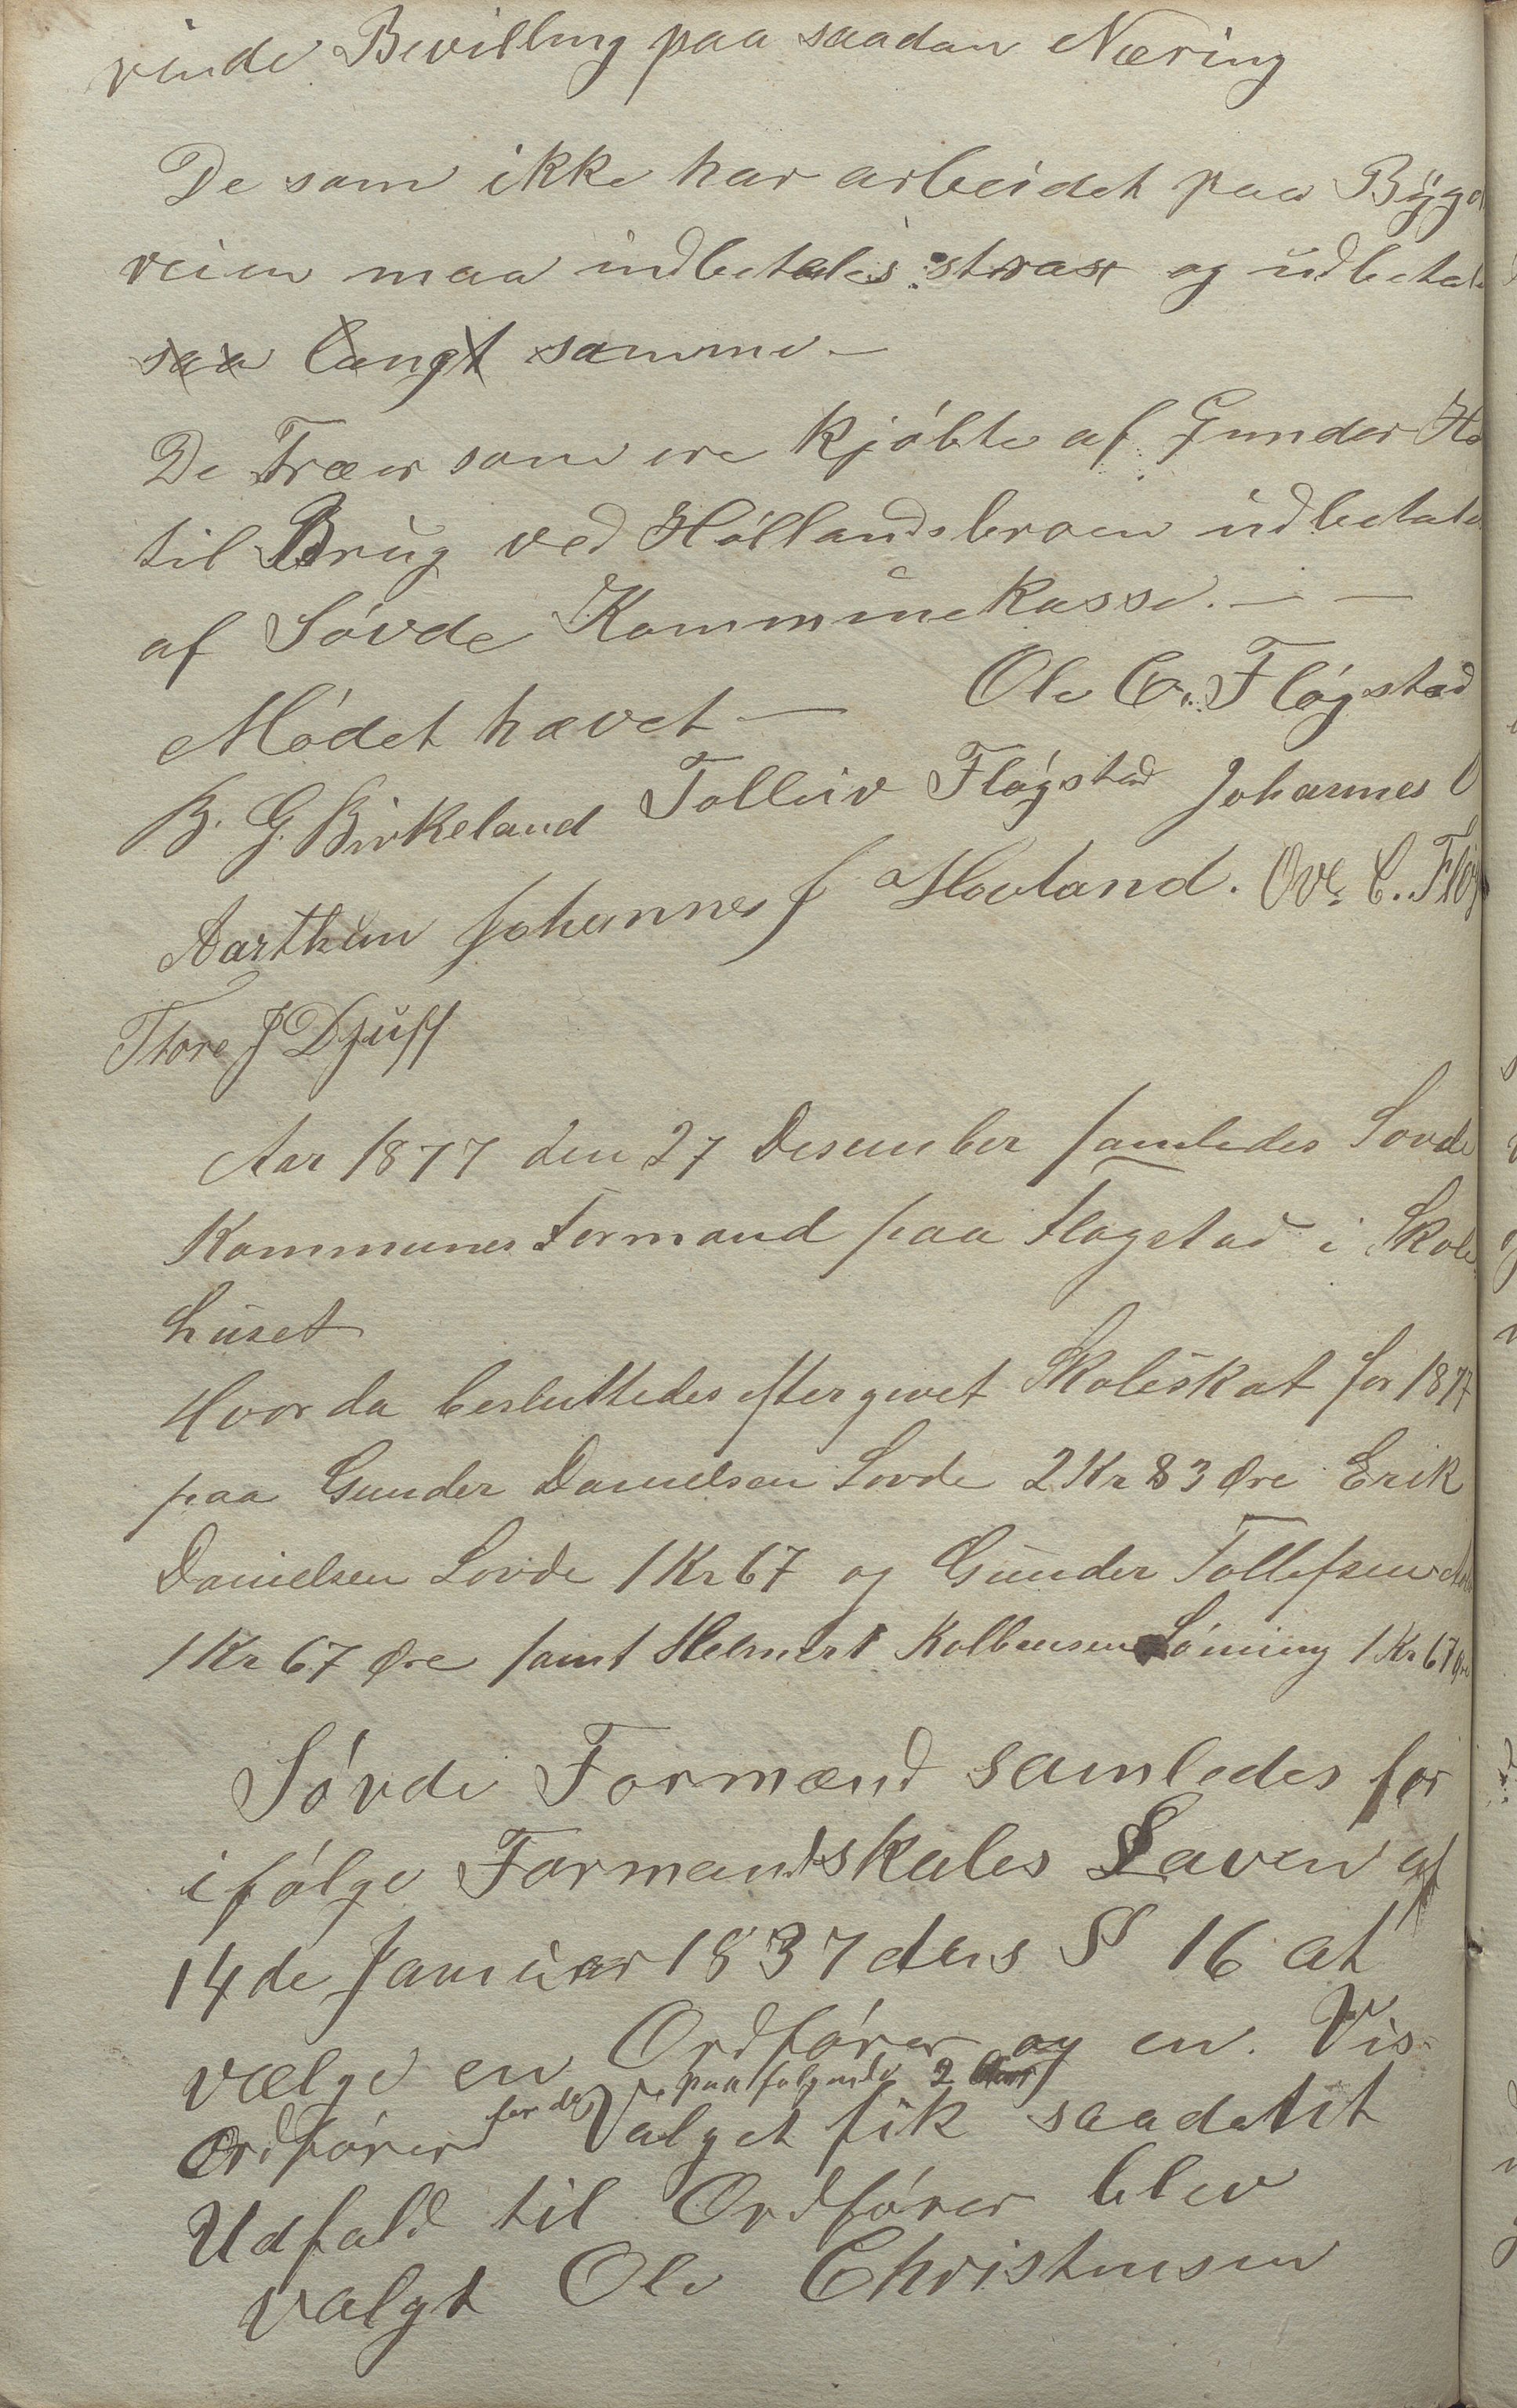 vinde Bevilling paa saadan Næring
De som ikke har arbeidet paa Bygd
veien maa indbetales strax og udbetal
saa langt samme —
De Træer som ere kjøbte af Gunder Ho
til Brug ved Høllandsbroen udbetale
af Søvde Kommunekasse. — —
Mødet hævet — Ole C. Fløgstad
B. G. Birkeland Tolleiv Fløgstad Johannes O
Aarthun Johannes J Hovland. Ove C. Fløg
Thore J Djuff
Aar 1877 den 27 Desember samledes Søvde
Kommunes Formænd paa Fløgstad i Skole
huset
Hvor da besluttedes eftergivet Skoleskat for 1877
paa Gunder Danielsen Søvde 2 Kr 83 Øre Erik
Danielsen Søvde 1 Kr 67 og Gunder Tollefsen
1 Kr 67 Øre samt Helmert Kolbensen Løining 1 Kr 67 Øre
Søvde Formænd samledes for
ifølge Formandskabs Laaven af
14de Januar 1837 dens § 16 at
vælge en Ordfører og en Vis-
ordfører for de paafølgende 2 Aar
Valget fik saadant
Udfald til Ordfører blev
valgt Ole Christensen